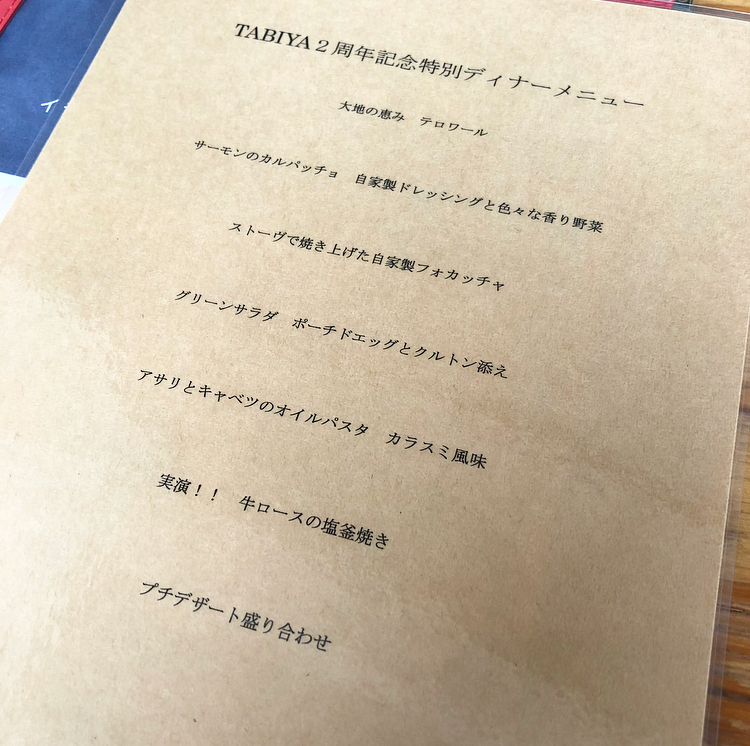 TABIYA２周年記念特別ディナーメニュー
大地の恵み　テロワール
サーモンのカルパッチョ　自家製ドレッシングと色々な香り野菜
ストーヴで焼き上げた自家製フォカッチャ
グリーンサラダ　ポーチドエッグとクルトン添え
アサリとキャベツのオイルパスタ　カラスミ風味
実演！！　牛ロースの塩釜焼き
プチデザート盛り合わせ